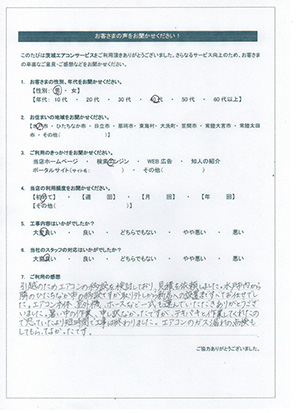 お客さまの声をお聞かせください！
このたびは茨城エアコンサービスをご利用頂きありがとうございました。さらなるサービス向上のため、お客さま
の率直なご意見・ご感想などをお聞かせください。
1. お客さまの性別、年代をお聞かせください。
【性別： 男 ・ 女】
【年代：10代 ・ 20代 ・ 30代 ・ 40代 ・ 50代 ・ 60代以上】
2. お住まいの地域をお聞かせください。
水戸市 ・ ひたちなか市 ・ 日立市 ・ 那珂市 ・ 東海村 ・ 大洗町 ・ 笠間市 ・ 常陸大宮市 ・ 常陸太田
市 ・ その他( )
3. ご利用のきっかけをお聞かせください。
当店ホームページ ・ 検索エンジン ・ WEB広告 ・ 知人の紹介
ポータルサイト(サイト名： ) ・ その他( )
4. 当店の利用頻度をお聞かせください。
【初めて】 ・ 【週 回】 ・ 【月 回】 ・ 【年 回】
【その他( )】
5. 工事内容はいかがでしたか？
大変良い ・ 良い ・ どちらでもない ・ やや悪い ・ 悪い
6. 当社のスタッフの対応はいかがでしたか？
大変良い ・ 良い ・ どちらでもない ・ やや悪い ・ 悪い
7. ご利用の感想
引越のためエアコンの移設を検討しており、見積を依頼しました。水戸市内から
隣のひたちなか市の移設ですが取り外しから新居への設置まですべてお任せでし
た。エアコン本体、室外機、ホースなど一式も運んでいただきありがとうござ
いました。暑い中の作業、申し訳なかったですが、テキパキと作業してくれたの
で思っていたより短時間で工事は終わりました。エアコンのガス漏れの点検も
してもらえてよかったです。
ご協力ありがとうございました。